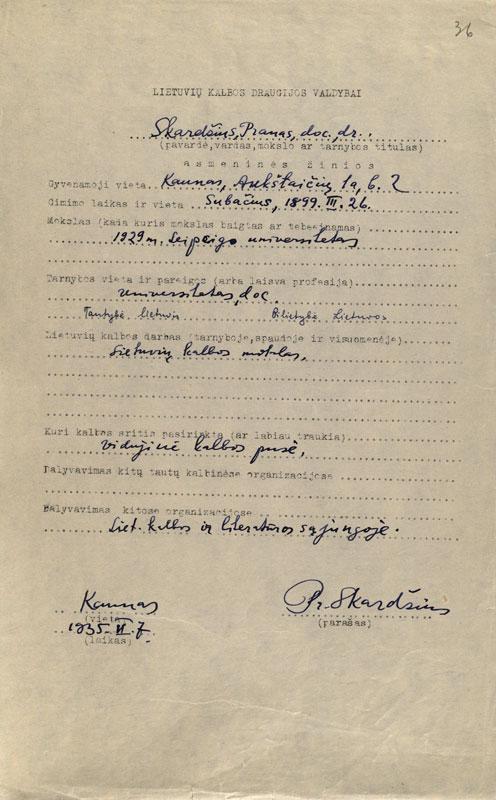 36
LIETUVIŲ KALBOS DRAUGIJOS VALDYBAI
Skardžius, Pranas, doc. dr.
(pavardė, vardas, mokslo ar tarnybos titulas)
asmeninės žinios
Gyvenamoji vieta Kaunas, Aukštaičių 1a, b. 2
Gimimo laikas ir vieta Subačius, 1899. III. 26.
Mokslas (kada kuris mokslas baigtas ar tebeeinamas)
1929 m. Leipcigo universitetas
Tarnybos vieta ir pareigos (arba laisva profesija)
universitetas, doc.
Tautybė lietuvis Pilietybė Lietuvos
Lietuvių kalbos darbas (tarnyboje, spaudoje ir visuomenėje)
Lietuvių kalbos mokslas,
Kuri kalbos sritis pasirinkta (ar labiau traukia)
vidujinė kalbos pusė,
Dalyvavimas kitų tautų kalbinėse organizacijose
Dalyvavimas kitose organizacijose
Liet. kalbos ir literatūros sąjungoje.
Kaunas Pr. Skardžius
(vieta) (parašas)
1935. II. 7.
(laikas)